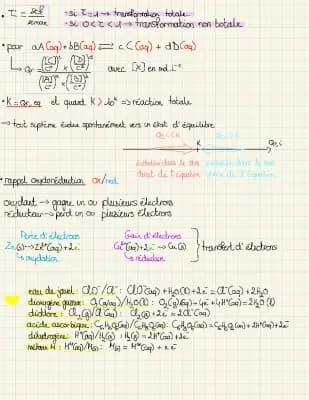 • τ = xf / xmax
- si τ = 1 → transformation totale
- si 0 < τ < 1 → transformation non totale
• pour aA(aq) + bB(aq) ⇌ cC(aq) + dD(aq)
↳ Qr = ([C]/c°)^c × ([D]/c°)^d / ([A]/c°)^a × ([B]/c°)^b avec [X] en mol.L⁻¹
• K = Qr,eq et quand K > 10⁴ ⇒ réaction totale
→ tout système évolue spontanément vers un état d'équilibre
Qr,i < K
K
Qr,i
évolution dans le sens direct de l'équation
évolution dans le sens
• rappel oxydoréduction ox/red
oxydant → gagne un ou plusieurs électrons
réducteur → perd un ou plusieurs électrons
Perte d'électrons
Gain d'électrons
Zn(s) → Zn²⁺(aq) + 2e⁻
Cu²⁺(aq) + 2e⁻ → Cu(s)
} transfert d'électrons
↳ oxydation
↳ réduction
eau de javel : ClO⁻/Cl⁻ : ClO⁻(aq) + H₂O(l) + 2e⁻ = Cl⁻(aq) + 2HO⁻
dioxygène gazeux : O₂(g)/H₂O(l) : O₂(g) + 4e⁻ + 4H⁺(aq) = 2H₂O(l)
dichlore : Cl₂(g)/Cl⁻(aq) : Cl₂(g) + 2e⁻ = 2Cl⁻(aq)
acide ascorbique : C₆H₆O₆(aq)/C₆H₈O₆(aq) : C₆H₈O₆(aq) = C₆H₆O₆(aq) + 2H⁺(aq) + 2e⁻
dihydrogène : H⁺(aq)/H₂(g) : H₂(g) = 2H⁺(aq) + 2e⁻
métaux M : Mⁿ⁺(aq)/M(s) : M(s) = Mⁿ⁺(aq) + n e⁻